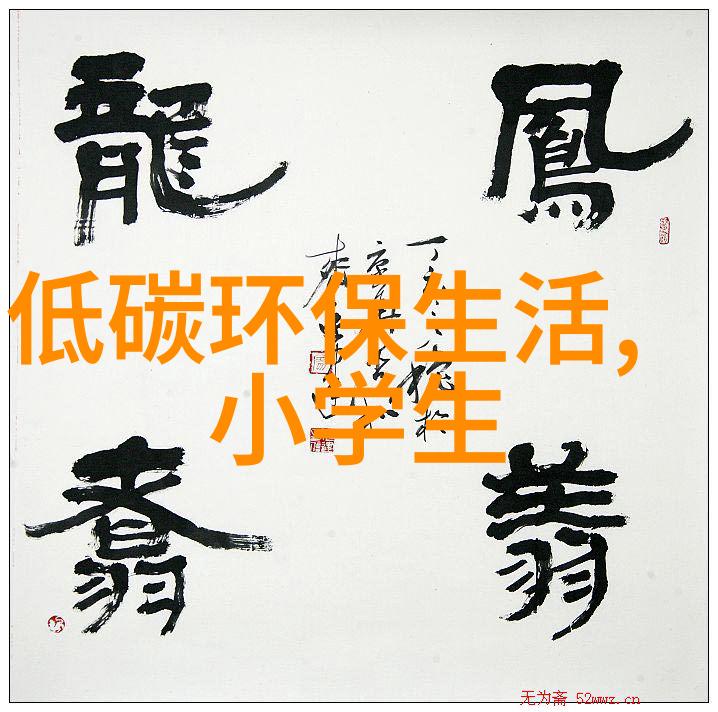 鳳翔
龍翥
低碳环保生活,
小学生
无为斋 52wwz.cn